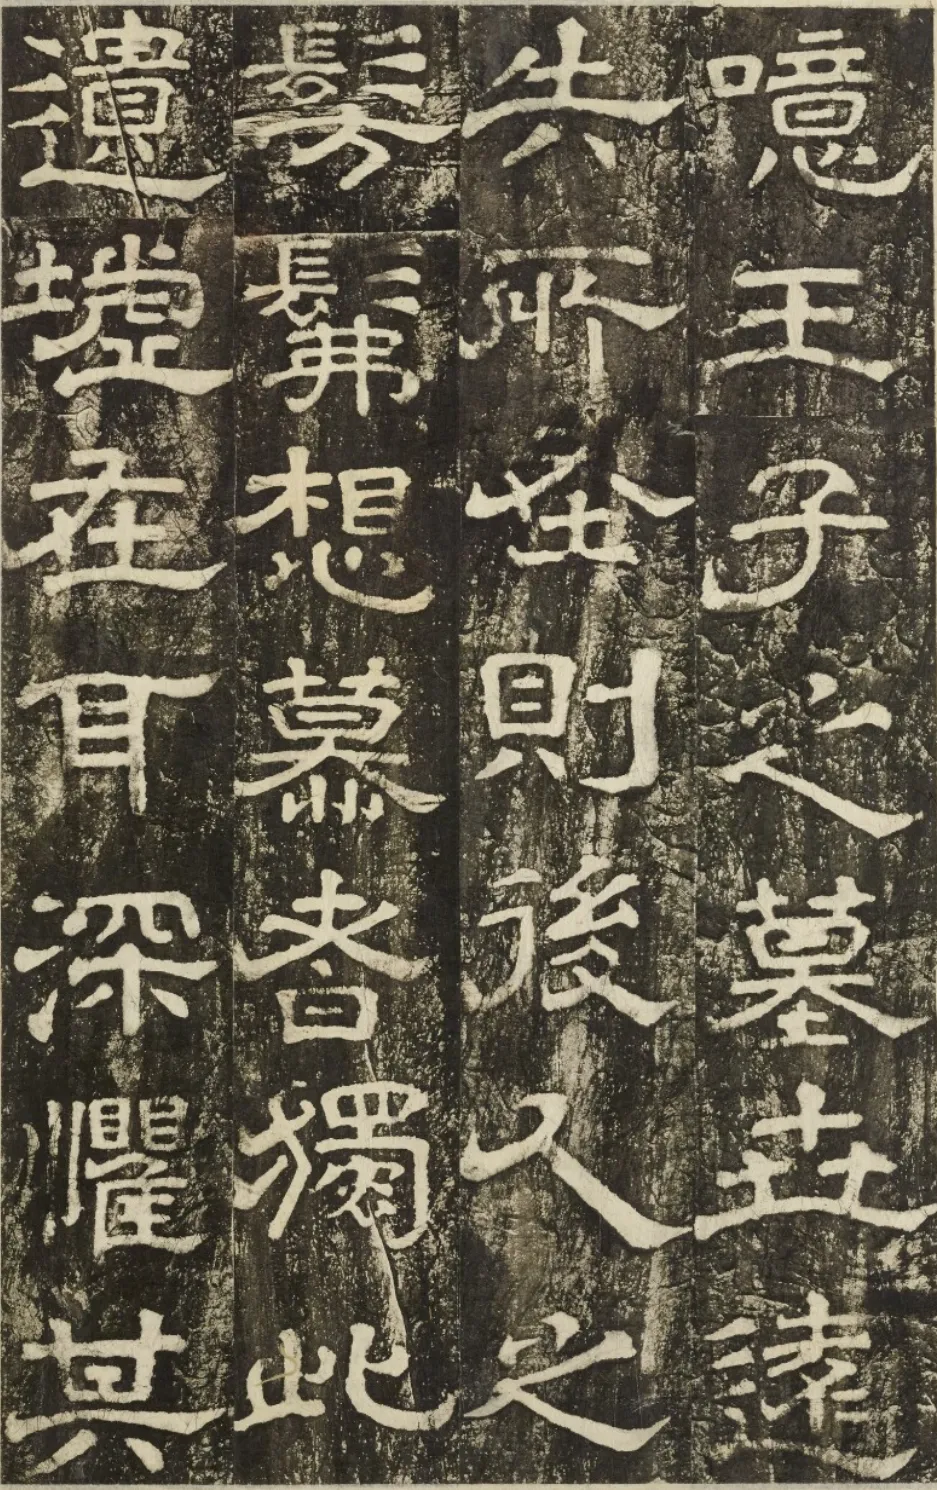 噫王子之墓世遠
失所在則後人之
髣髴想慕者獨此
遺墟在耳深懼其